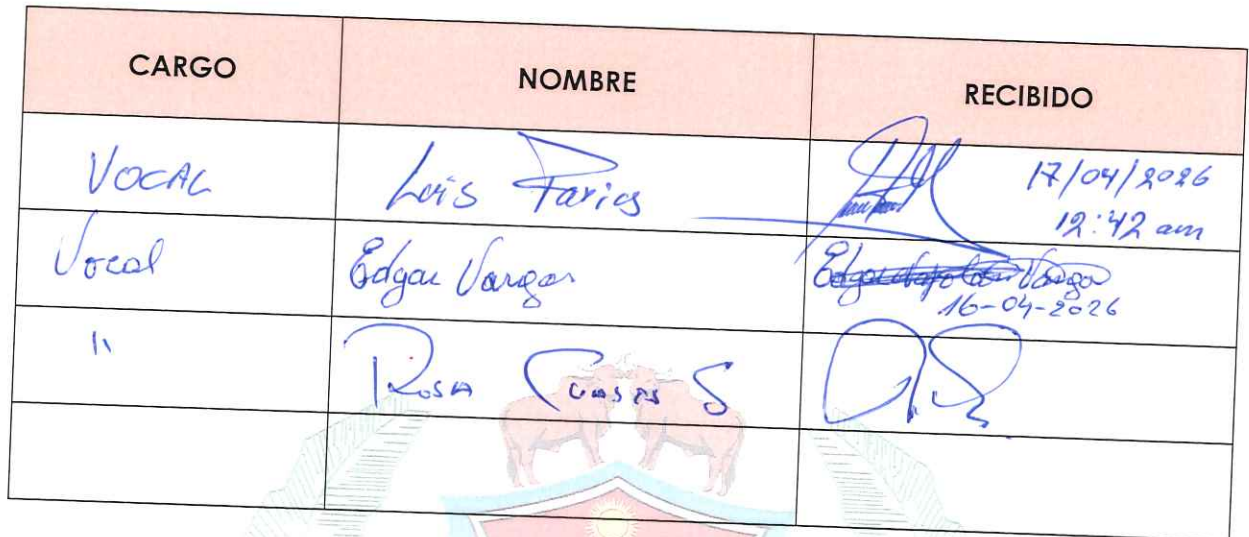 CARGO NOMBRE RECIBIDO
VOCAL Luis Farias 17/04/2026
12:42 am
Vocal Edgar Vargas Edgar Vargas
16-04-2026
" Rosa S